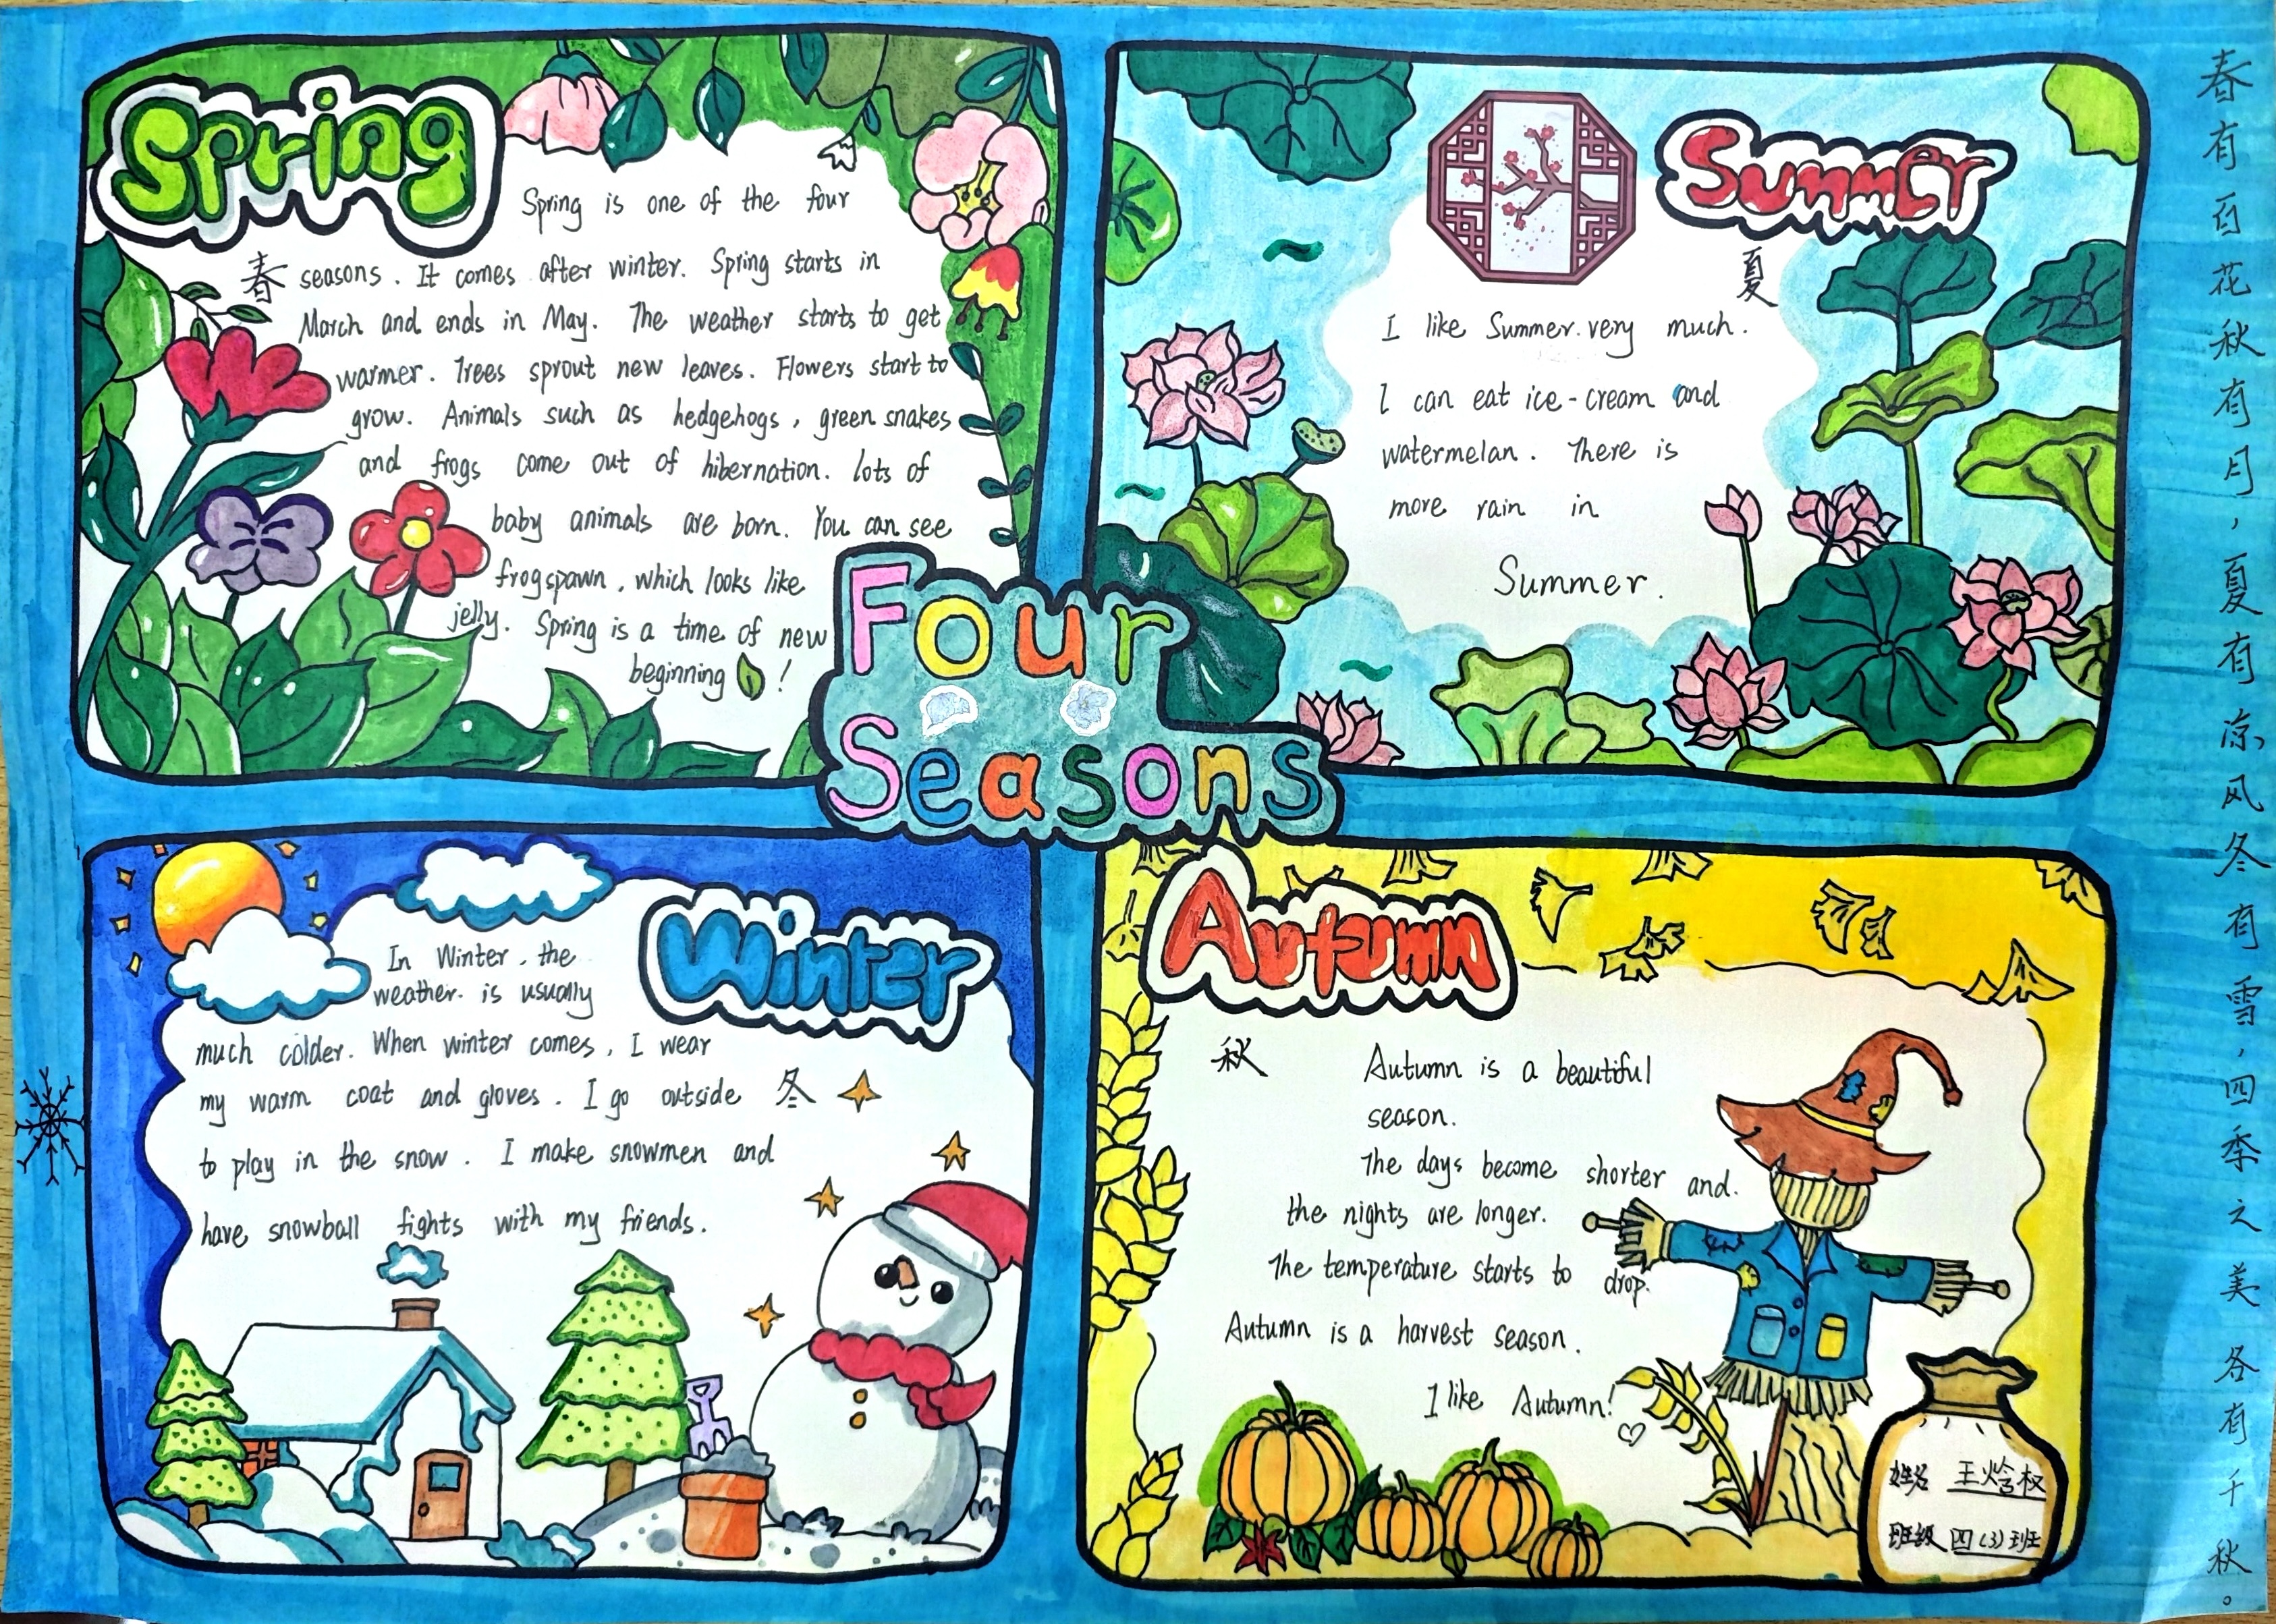 Spring
Spring is one of the four
春 seasons. It comes after winter. Spring starts in
March and ends in May. The weather starts to get
warmer. Trees sprout new leaves. Flowers start to
grow. Animals such as hedgehogs, green snakes
and frogs come out of hibernation. lots of
baby animals are born. You can see
frogspawn, which looks like
jelly. Spring is a time of new
beginning !
Summer
夏
I like Summer. very much.
I can eat ice-cream and
watermelan. There is
more rain in
Summer.
Four
Seasons
Winter
In Winter, the
weather. is usually
much colder. When winter comes, I wear
my warm coat and gloves. I go outside
冬
to play in the snow. I make snowmen and
have snowball fights with my friends.
Autumn
秋
Autumn is a beautiful
season.
The days become shorter and.
the nights are longer.
The temperature starts to drop.
Autumn is a harvest season.
I like Autumn!
姓名 王焓权
班级 四(3)班
春有百花秋有月,夏有凉风冬有雪,四季之美各有千秋。